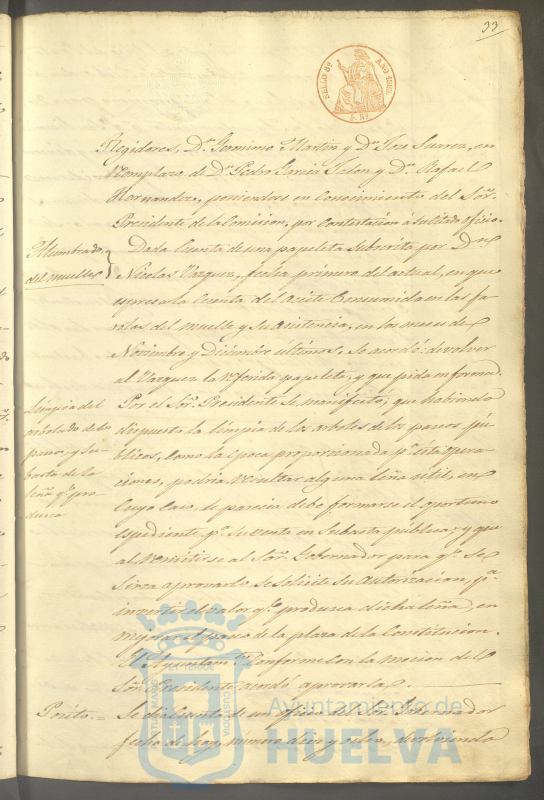 33
SELLO 8º AÑO 1862
Regidores, Dn. Geronimo Martin y Dn. Jose Suarez, en
reemplazo de Dn. Pedro Garcia Jelon y Dn. Rafael
Hernandez, poniendose en conocimiento del Sor.
Presidente de la Comision, por contestacion á su citado oficio.
Alumbrado
del muelle
Dada cuenta de una papeleta subscrita por Dn.
Nicolas Vazquez, fecha primero del actual, en que
espresa la cuenta del aceite consumida en las fa-
rolas del muelle y su asistencia, en los meses de
Noviembre y Diciembre últimos, se acordó: devolver
al Vazquez la referida papeleta, y que pida en forma.
Limpia del
arbolado de los
paseos, y su-
basta de la
leña qe. pro-
duzca
Por el Sor. Presidente se manifestó; que habiendo
dispuesto la limpia de los arboles de los paseos pú-
blicos, como la época proporcionada pa. esta opera-
ciones, podria resultar alguna leña útil, en
cuyo caso, le parecia debe formarse el oportuno
espediente, pa. su venta en subasta pública; y que
al remitirse al Sor. Gobernador para qe. se
sirva aprovarlo se solicite su autorizacion, pa.
invertir el valor qe. produzca dicha leña, en
mejorar el paseo de la plaza de la Constitucion.
Y el Ayuntamto. conforme con la mocion del
Sor. Presidente acordó aprovarla.
Pósito.=
Se dió cuenta de un oficio del Sor. Gobernador
fecha de hoy, número diez y ocho, devolviendo
PORTUS MARIS ET TERRAE CUSTODIA
Ayuntamiento de
HUELVA